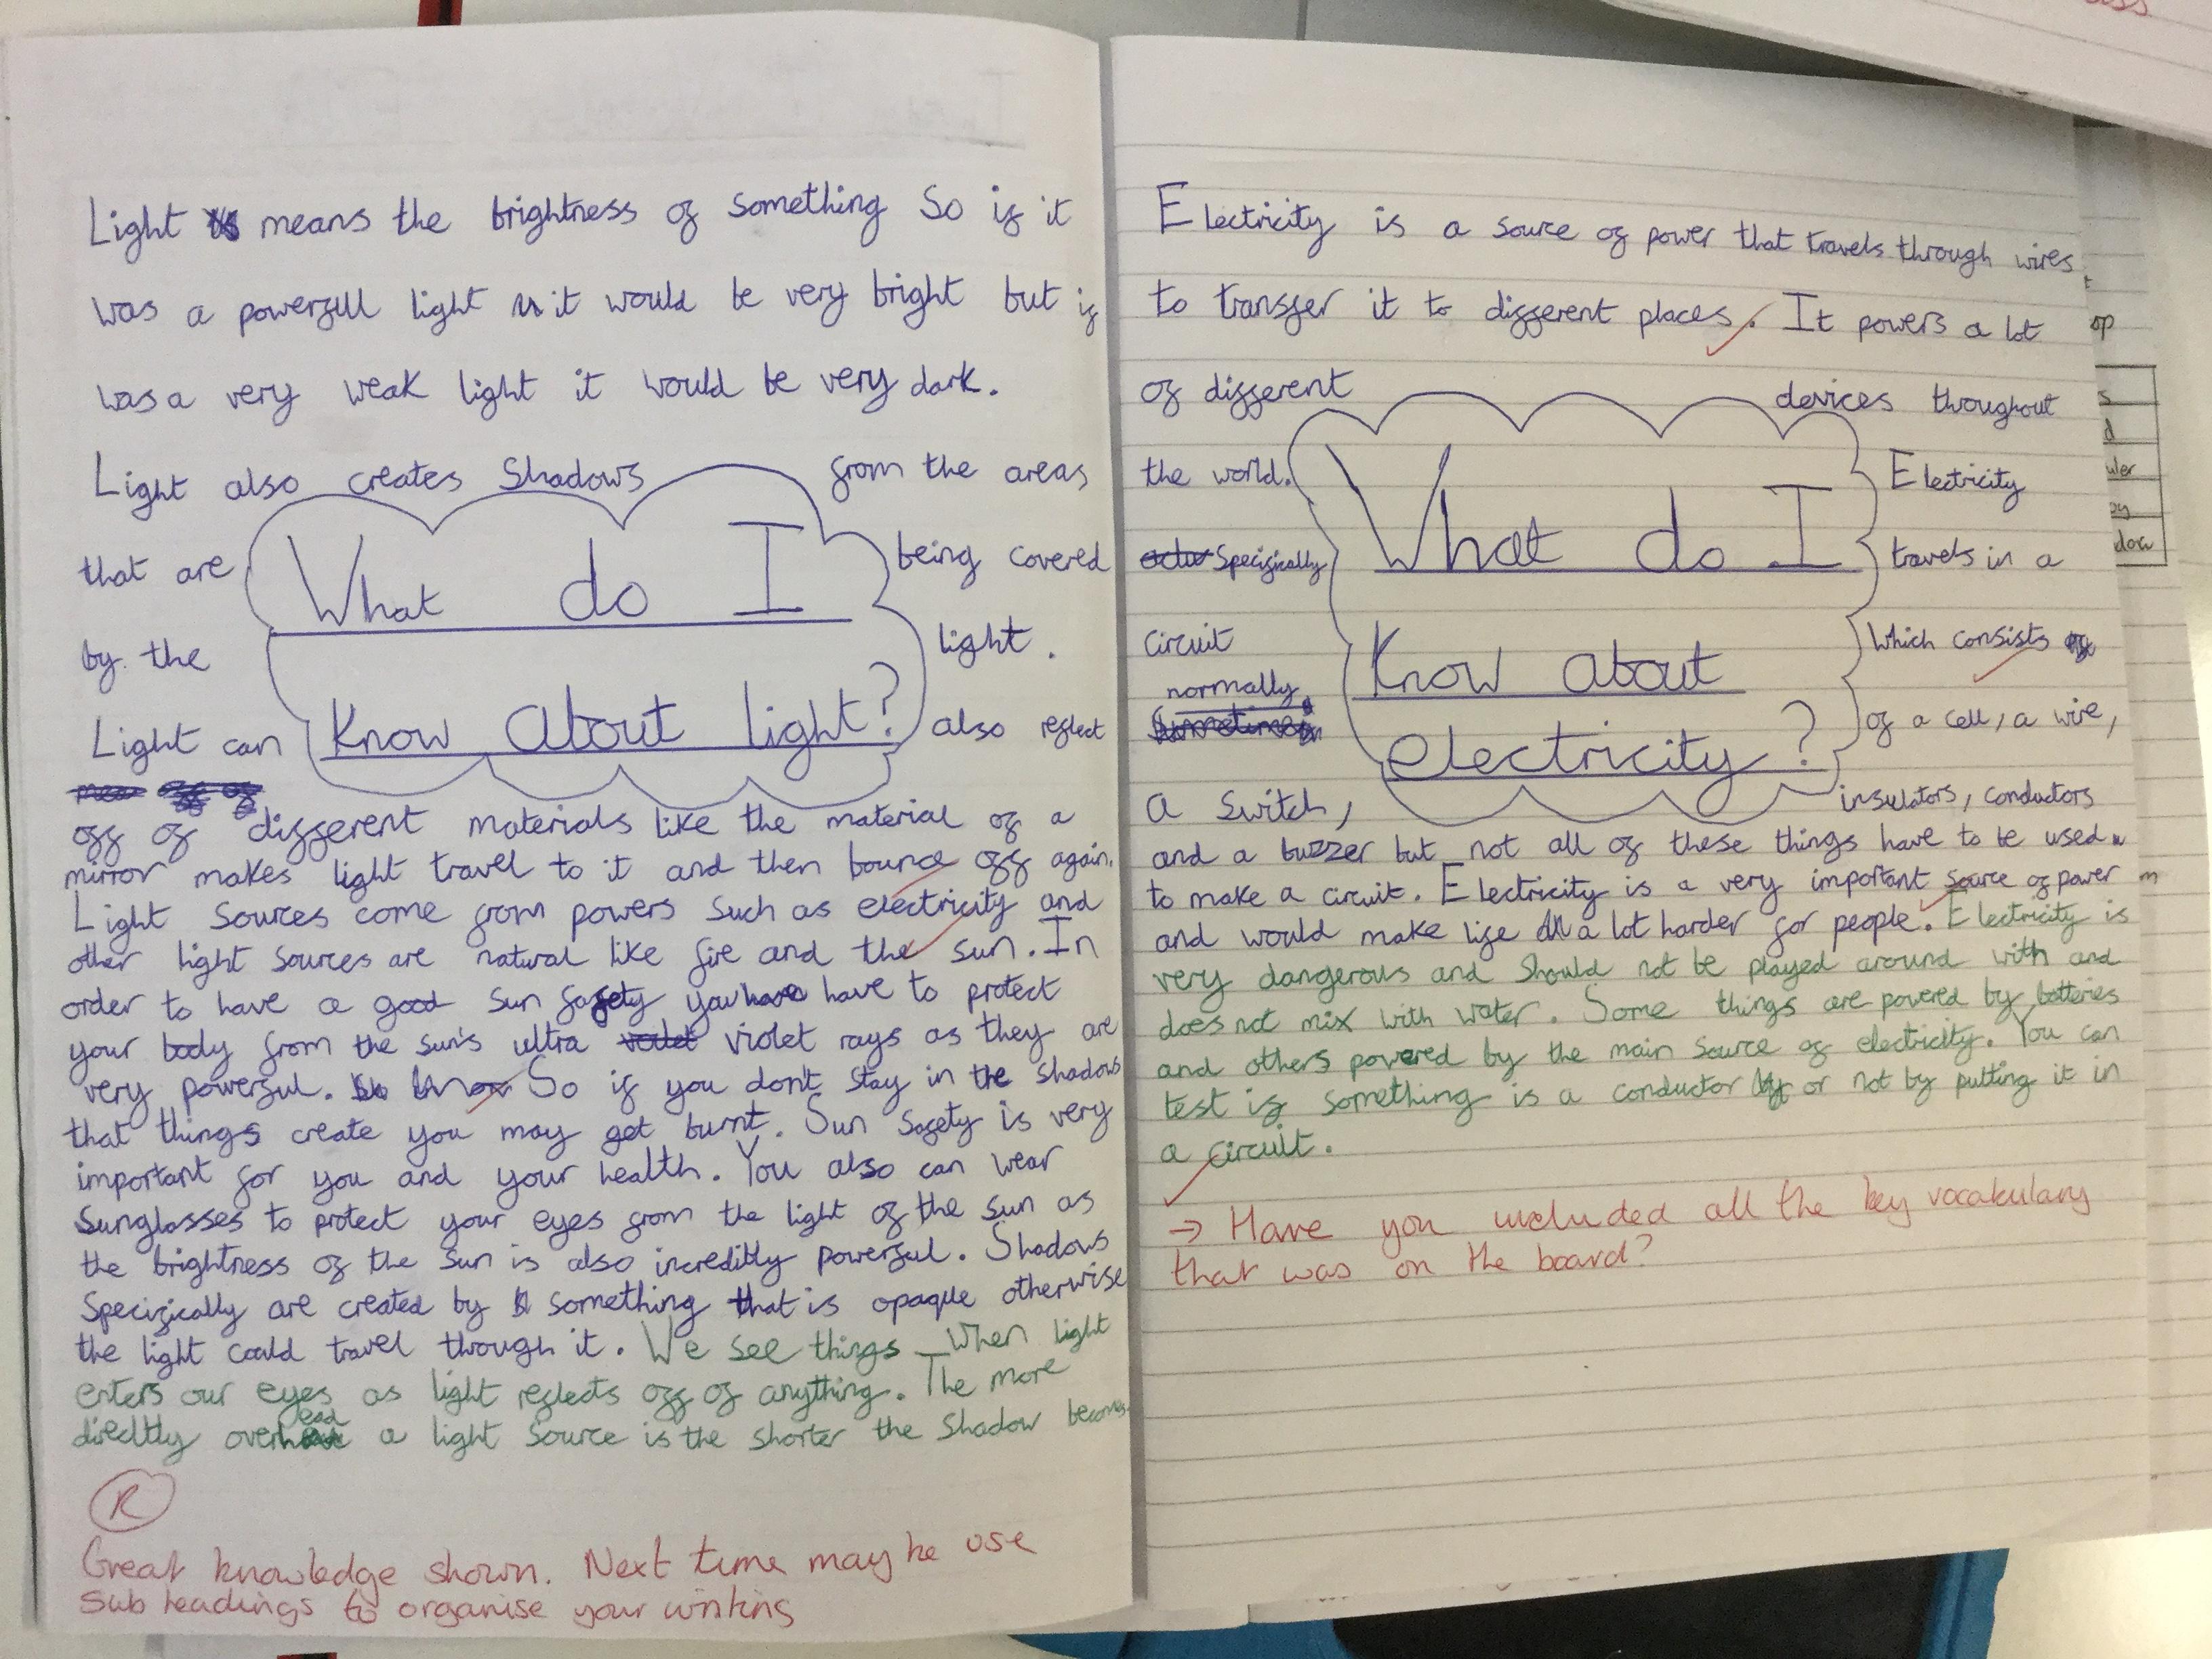 Light means the brightness of something So if it
was a powerfull light it would be very bright but if
was a very weak light it would be very dark.
Light also creates Shadows from the areas
that are being covered
by the light.
What do I
Know about light?
Light can also reflect
off of different materials like the material of a
mirror makes light travel to it and then bounce off again.
Light Sources come from powers such as electricity and
other light sources are natural like fire and the sun. In
order to have a good sun safety you have have to protect
your body from the sun's ultra violet rays as they are
very powerful. So if you don't stay in the shadows
that things create you may get burnt. Sun Safety is very
important for you and your health. You also can wear
Sunglasses to protect your eyes from the light of the sun as
the brightness of the sun is also incredibly powerful. Shadows
Specifically are created by something that is opaque otherwise
the light could travel through it. We see things when light
enters our eyes as light reflects off of anything. The more
directly overhead a light source is the shorter the shadow becomes
R
Great knowledge shown. Next time maybe use
sub headings to organise your writing
Electricity is a source of power that travels through wires
to transfer it to different places. It powers a lot
of different devices throughout
the world. Electricity
Specifically travels in a
circuit Which consists
normally of a cell, a wire,
What do I
Know about
electricity?
a switch, insulators, conductors
and a buzzer but not all of these things have to be used
to make a circuit. Electricity is a very important source of power
and would make life a lot harder for people. Electricity is
very dangerous and should not be played around with and
does not mix with water. Some things are powered by batteries
and others powered by the main source of electricity. You can
test if something is a conductor or not by putting it in
a circuit.
→ Have you included all the key vocabulary
that was on the board?